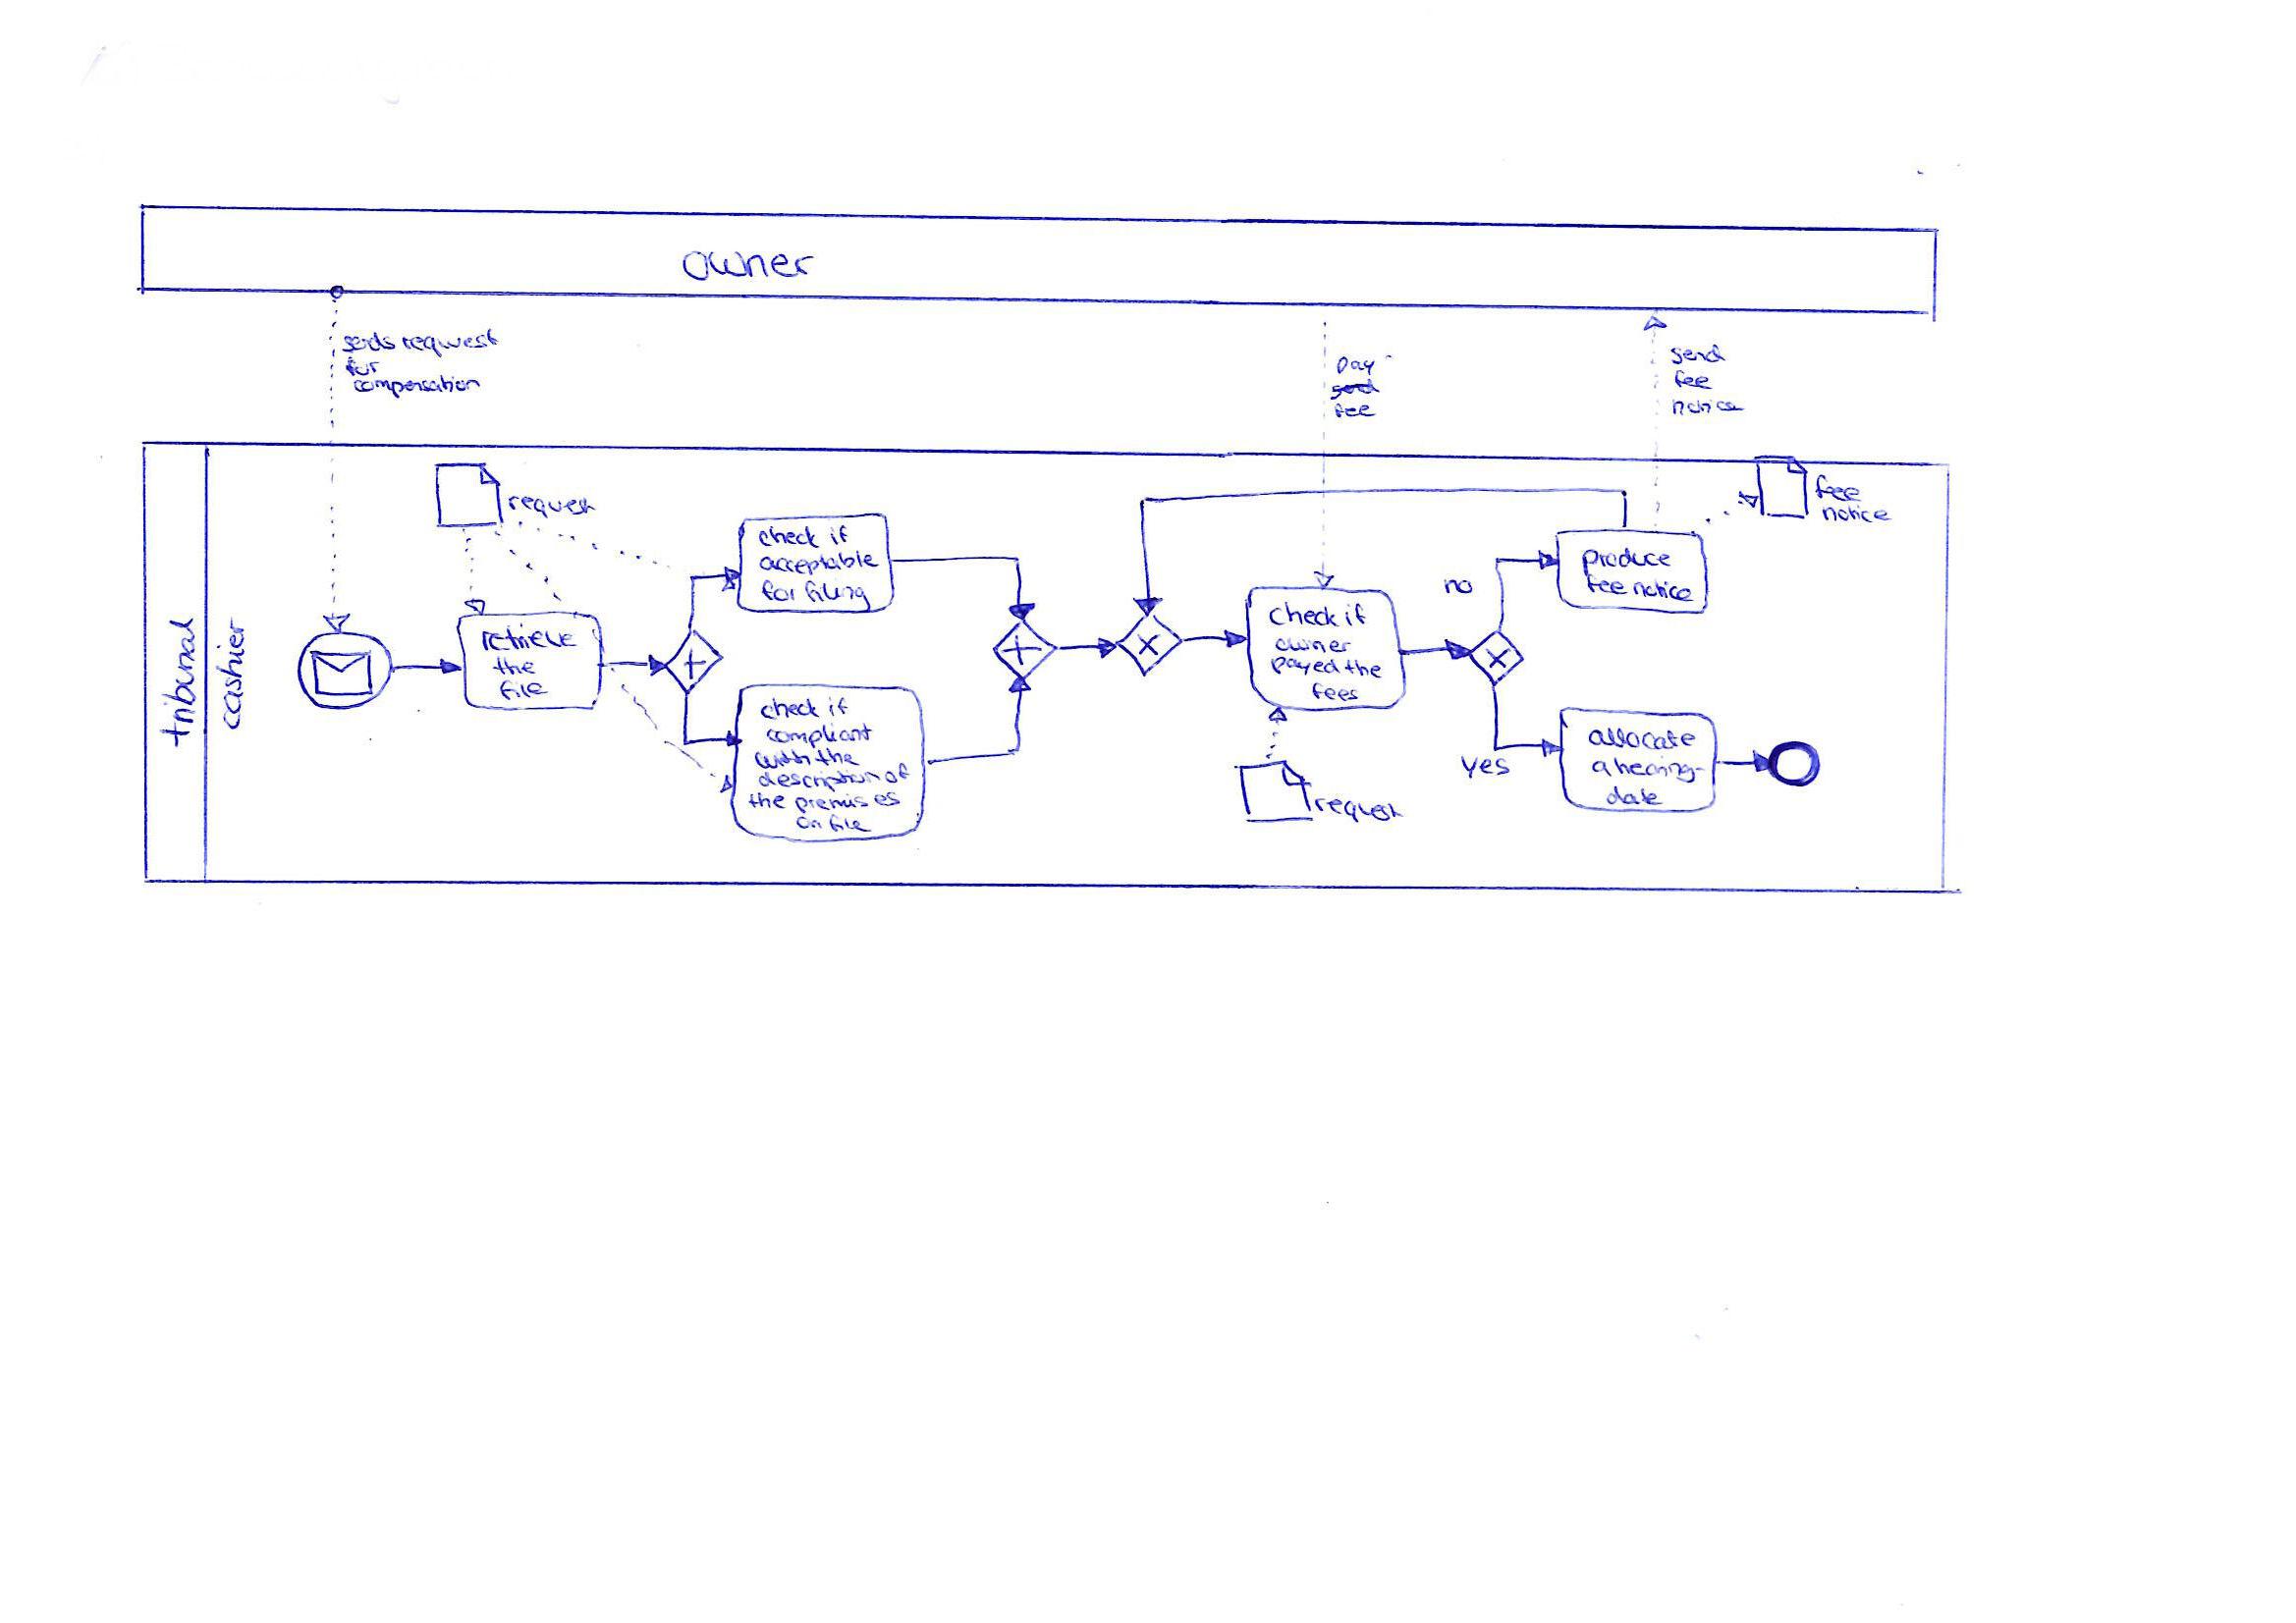 owner
sends request
for
compensation
pay
send
fee
send
fee
notice
tribunal
cashier
request
check if
acceptable
for filing
retrieve
the
file
check if
compliant
with the
description of
the premises
on file
check if
owner
payed the
fees
request
no
yes
produce
fee notice
fee
notice
allocate
a hearing-
date